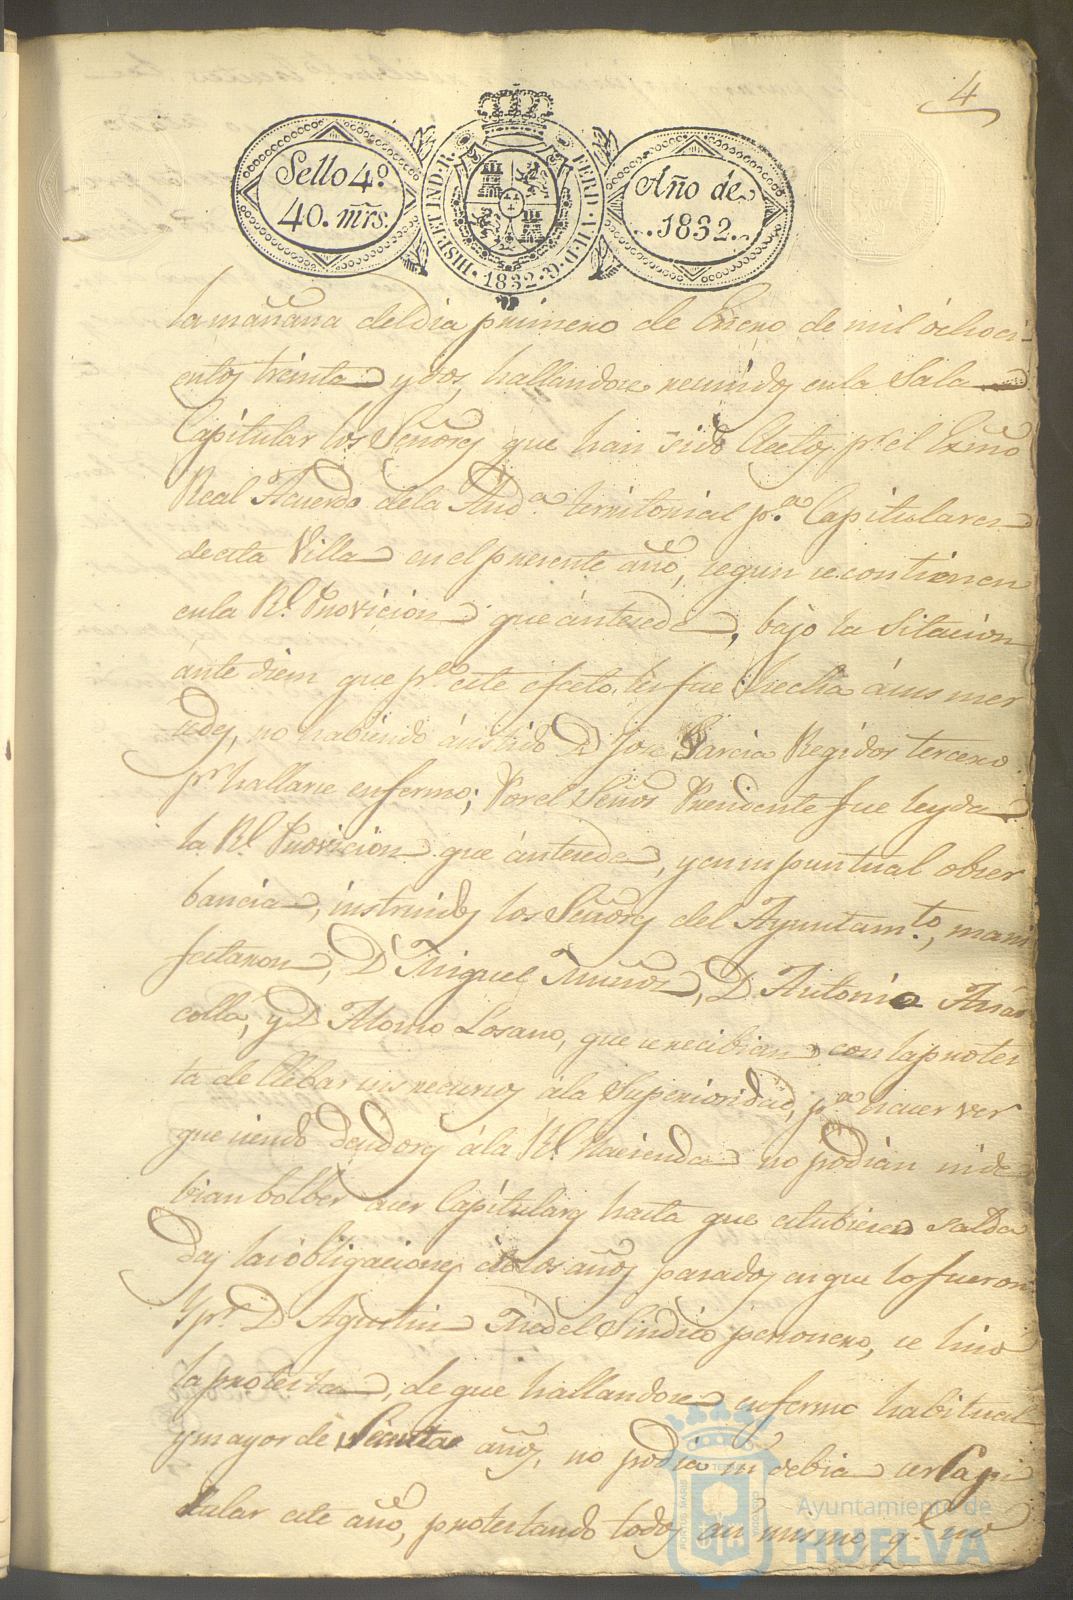 4
Sello 4º
40. mrs.
HISP. ET IND. R.
FERD. VII. D. G.
1832
Año de
1832.
la mañana del dia primero de Enero de mil óchoci-
entos treinta y dos, hallandose reunidos en la Sala
Capitular los Señores que han sido Electos pr. el Exmo
Real Acuerdo de la Auda. territorial pa. Capitulares
de esta Villa en el presente año, segun se contienen
en la Rl. Provicion que ántesede, bajo la Sitacion
ánte diem que pa. este efecto, les fue hecha á sus mer
sedes, no habiendo ásistido D. Jose Garcia Regidor tercero
pr. hallarse enfermo; Por el Señor Presidente fue leyda
la Rl. Provicion que ántesede, y en su puntual obser
bancia, instruidos los Señores del Ayuntamto., mani
festaron, D. Miguel Muños, D. Antonio
colla, y D. Alonso Losano, que se recibian con la protes
ta de llebar sus recursos á la Superioridad, pa. hacer ver
que siendo Deudores á la Rl. Hacienda no podian ni de
bian bolber á ser Capitulares hasta que estubiesen salda
das las óbligaciones de los años pasados en que lo fueron
Y pr. D. Agustin Sindico personero, se hiso
la protesta, de que hallandose enfermo habitual
y mayor de años, no podia ni debia ser Capi
tular este año, protestando todos asi mismo, q. no
Ayuntamiento de
HUELVA